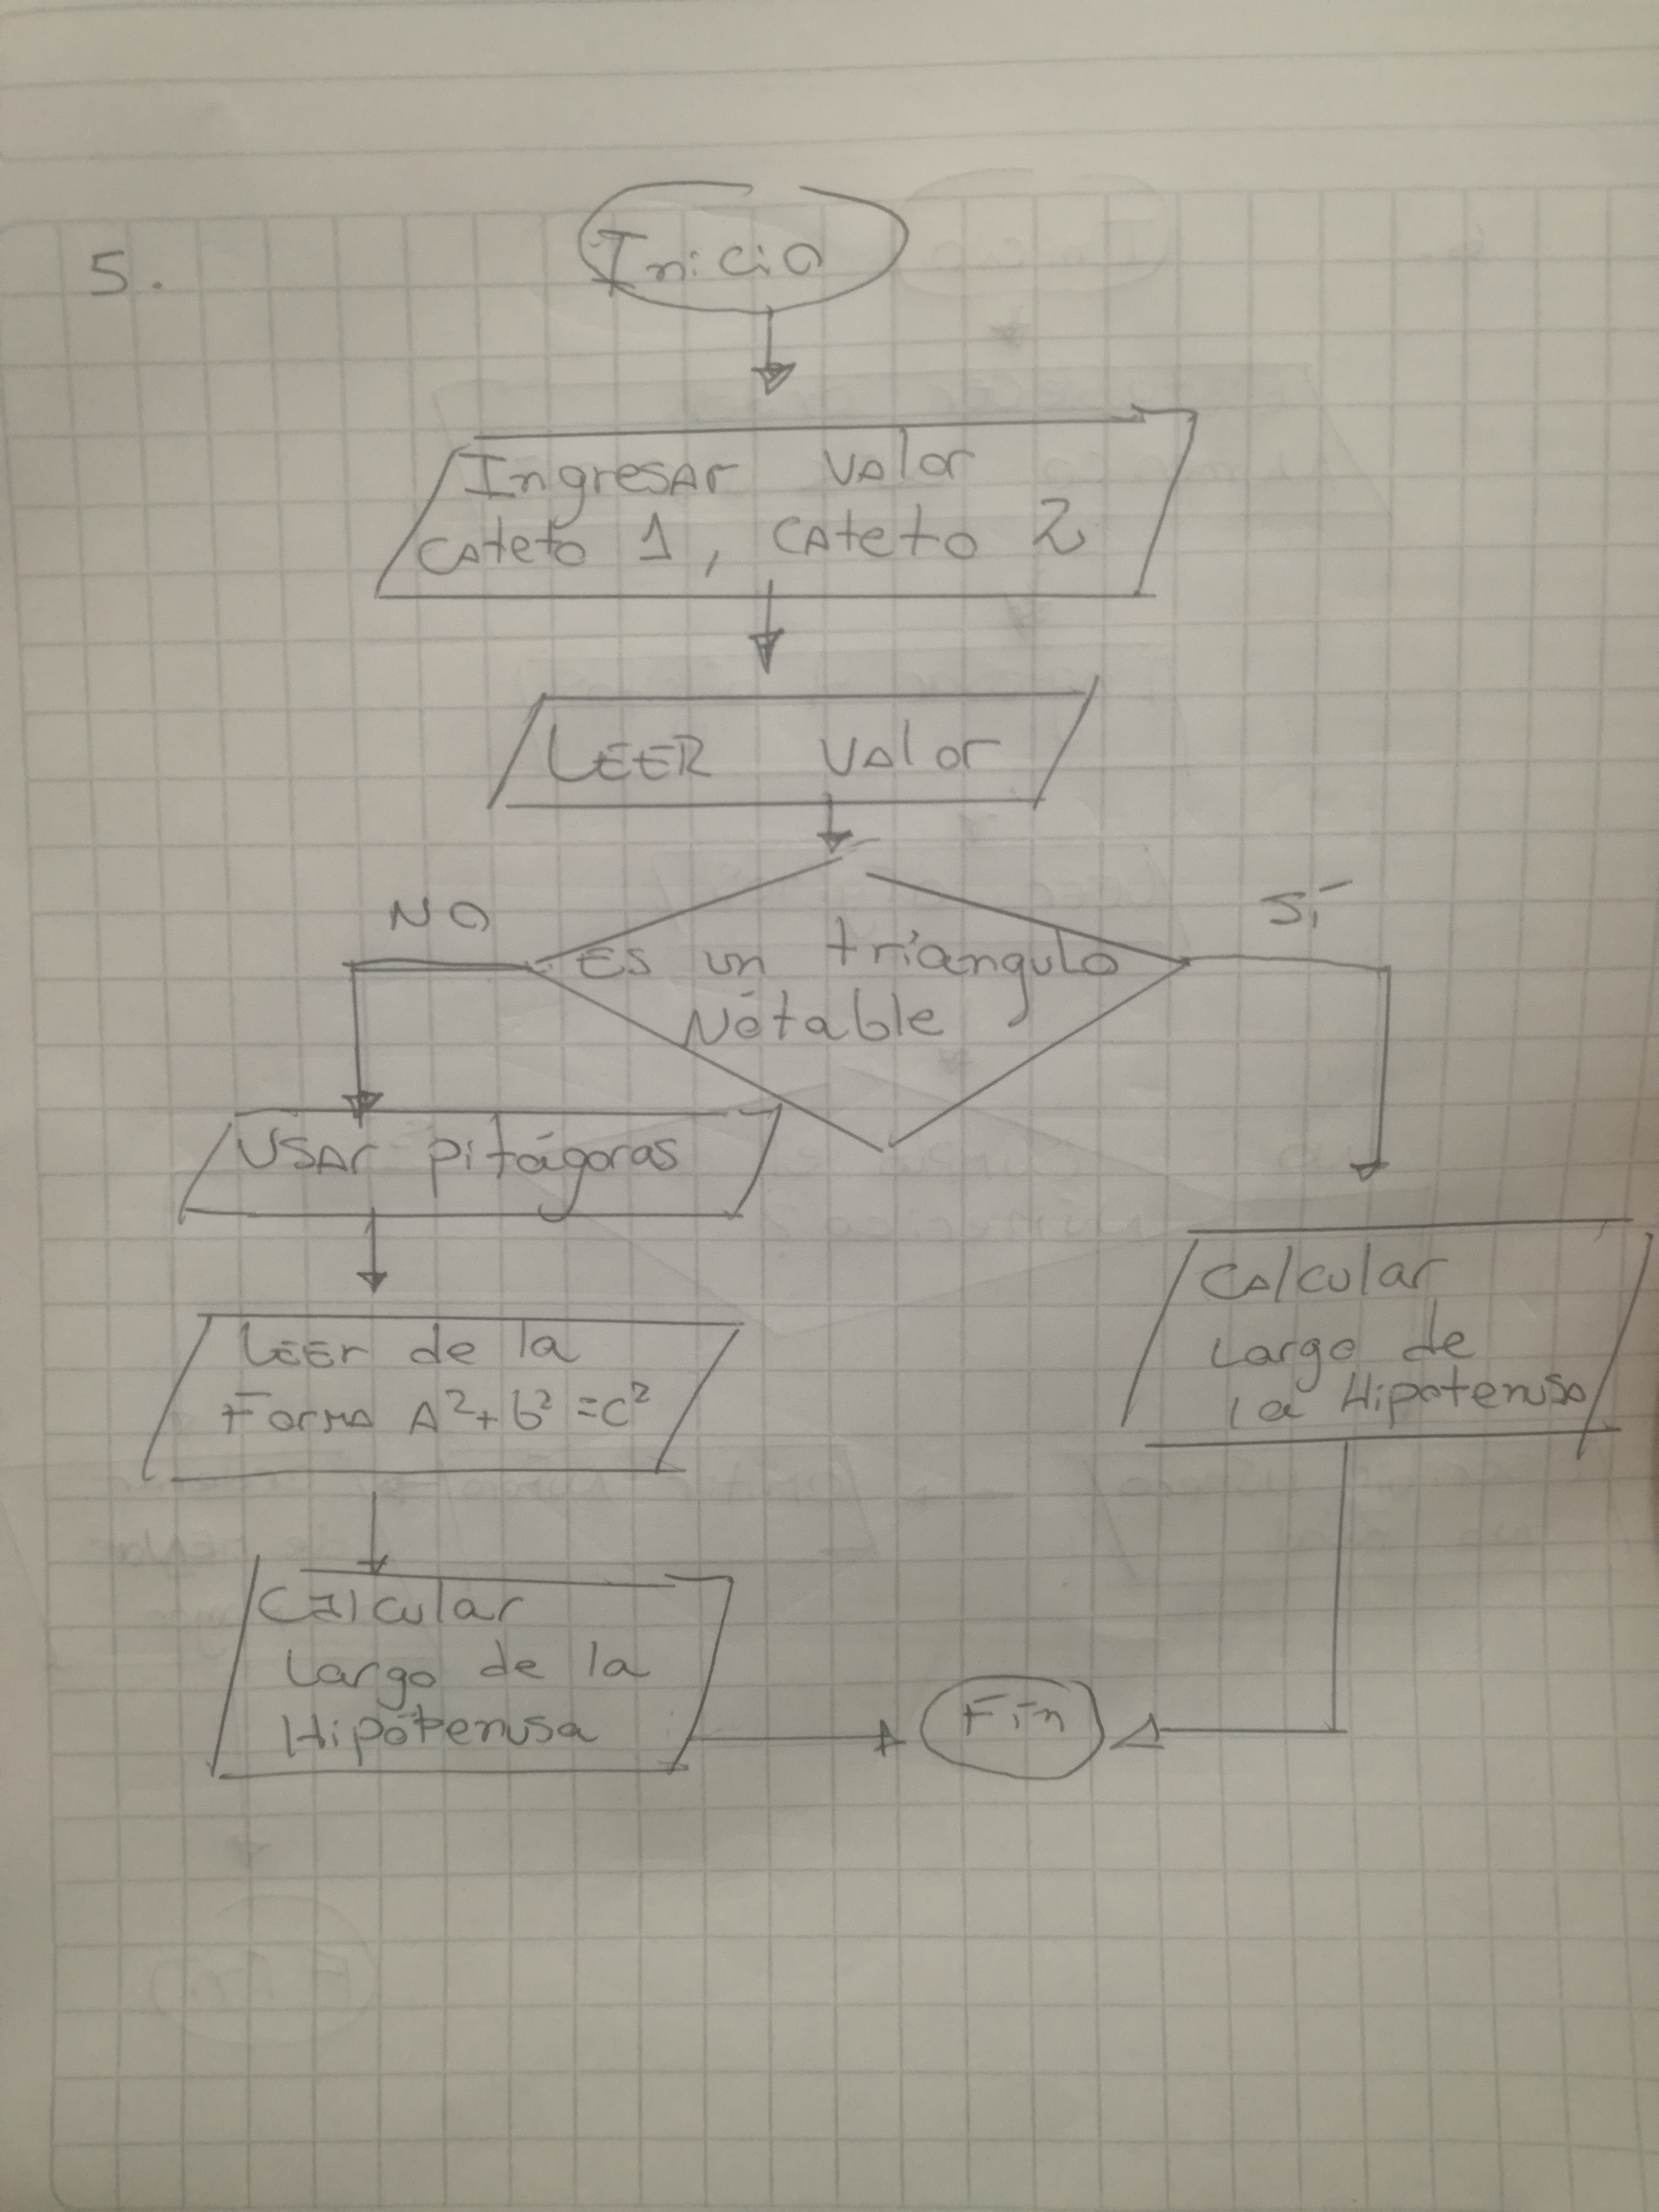 5.
Inicio
Ingresar valor
cateto 1, cateto 2
LEER valor
NO
Sí
Es un triangulo
Notable
Usar pitágoras
Leer de la
Forma A²+b²=c²
Calcular
Largo de la
Hipotenusa
Calcular
Largo de
la Hipotenusa
Fin